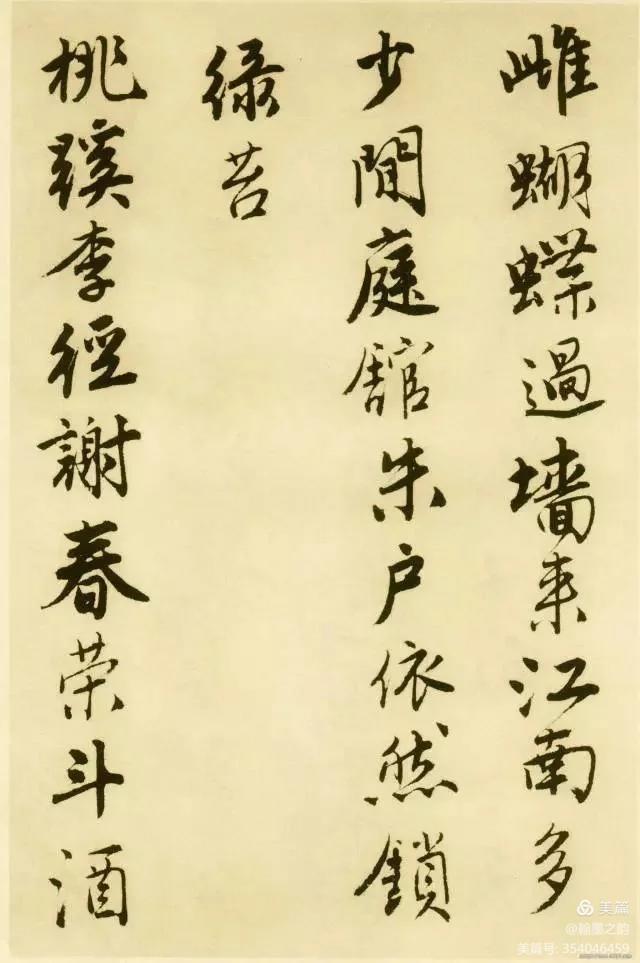 雌蝴蝶過墻来江南多
少閒庭舘朱户依然鎖
緑苔
桃蹊李徑謝春荣斗酒
美篇
@翰墨之韵
美篇号: 354046459